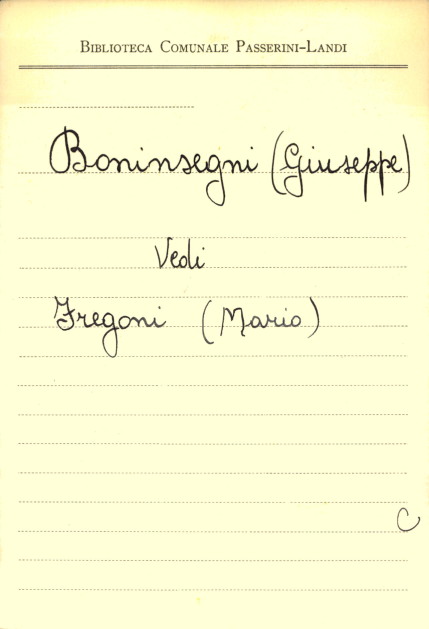 Biblioteca Comunale Passerini-Landi
Boninsegni (Giuseppe)
Vedi
Fregoni (Mario)
C